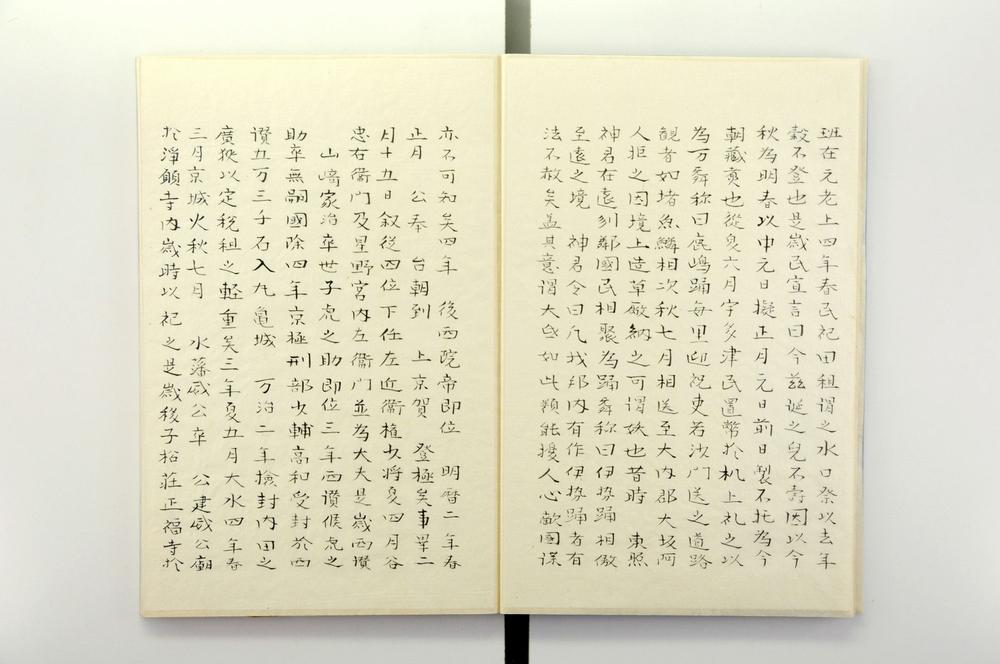 班在元老上四年春民祀田祖謂之水口祭以去年
穀不登也是歳民宣言曰今茲誕之兒不壽因以今
秋為明春以中元日擬正月元日前日製不托為今
朝藏賚也從夏六月宇多津民置幣於机上礼之以
為万舞称曰鹿嶋踊毎里迎祝吏若沙門送之道路
観者如堵魚鱗相次秋七月相送至大内郡大坂阿
人拒之因境上造草廠納之可謂妖也昔時　東照
神君在遠刕鄰國民相聚為踊舞称曰伊勢踊相傚
至遠之境　神君令曰凡我邦内有作伊勢踊者有
法不赦矣盖其意謂大氐如此類能擾人心敵國謀
亦不可知矣四年　後西院帝即位　明暦二年春
正月　公奉　台朝到　上京賀　登極矣事畢二
月十五日叙従四位下任左近衞権少将夏四月谷
忠右衞門及星野宮内左衞門並為大夫是歳西讃
山﨑家治卒世子虎之助即位三年西讃候虎之
助卒無嗣國除四年京極刑部少輔高和受封於西
讃五万三千石入九亀城　万治二年撿封内田之
廣狹以定税租之軽重矣三年夏五月大水四年春
三月京城火秋七月　水藩威公卒　公建威公廟
於淨願寺内歳時以祀之是歳後子松荘正福寺於